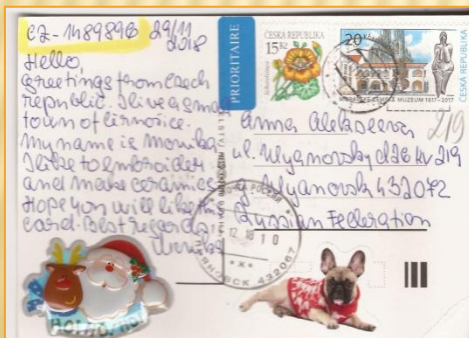 CZ-1489896 29/11
2018
Hello,
greetings from Czech
republic. I live a small
town of
my name is Monika
I like to embroider
and make ceramics
Hope you will like my
card. Best regards,
Monika
PRIORITAIRE
ČESKÁ REPUBLIKA
15 Kč
ČESKÁ REPUBLIKA
20 Kč
MUZEUM 1817-2017
219
Anna Alekseeva
ul. Ulyanovsky d26 kv 219
Ulyanovsk 432072
Russian Federation
ПОЧТА РОССИИ
12.18 10
УЛЬЯНОВСК 432067
HO! HO! HO!